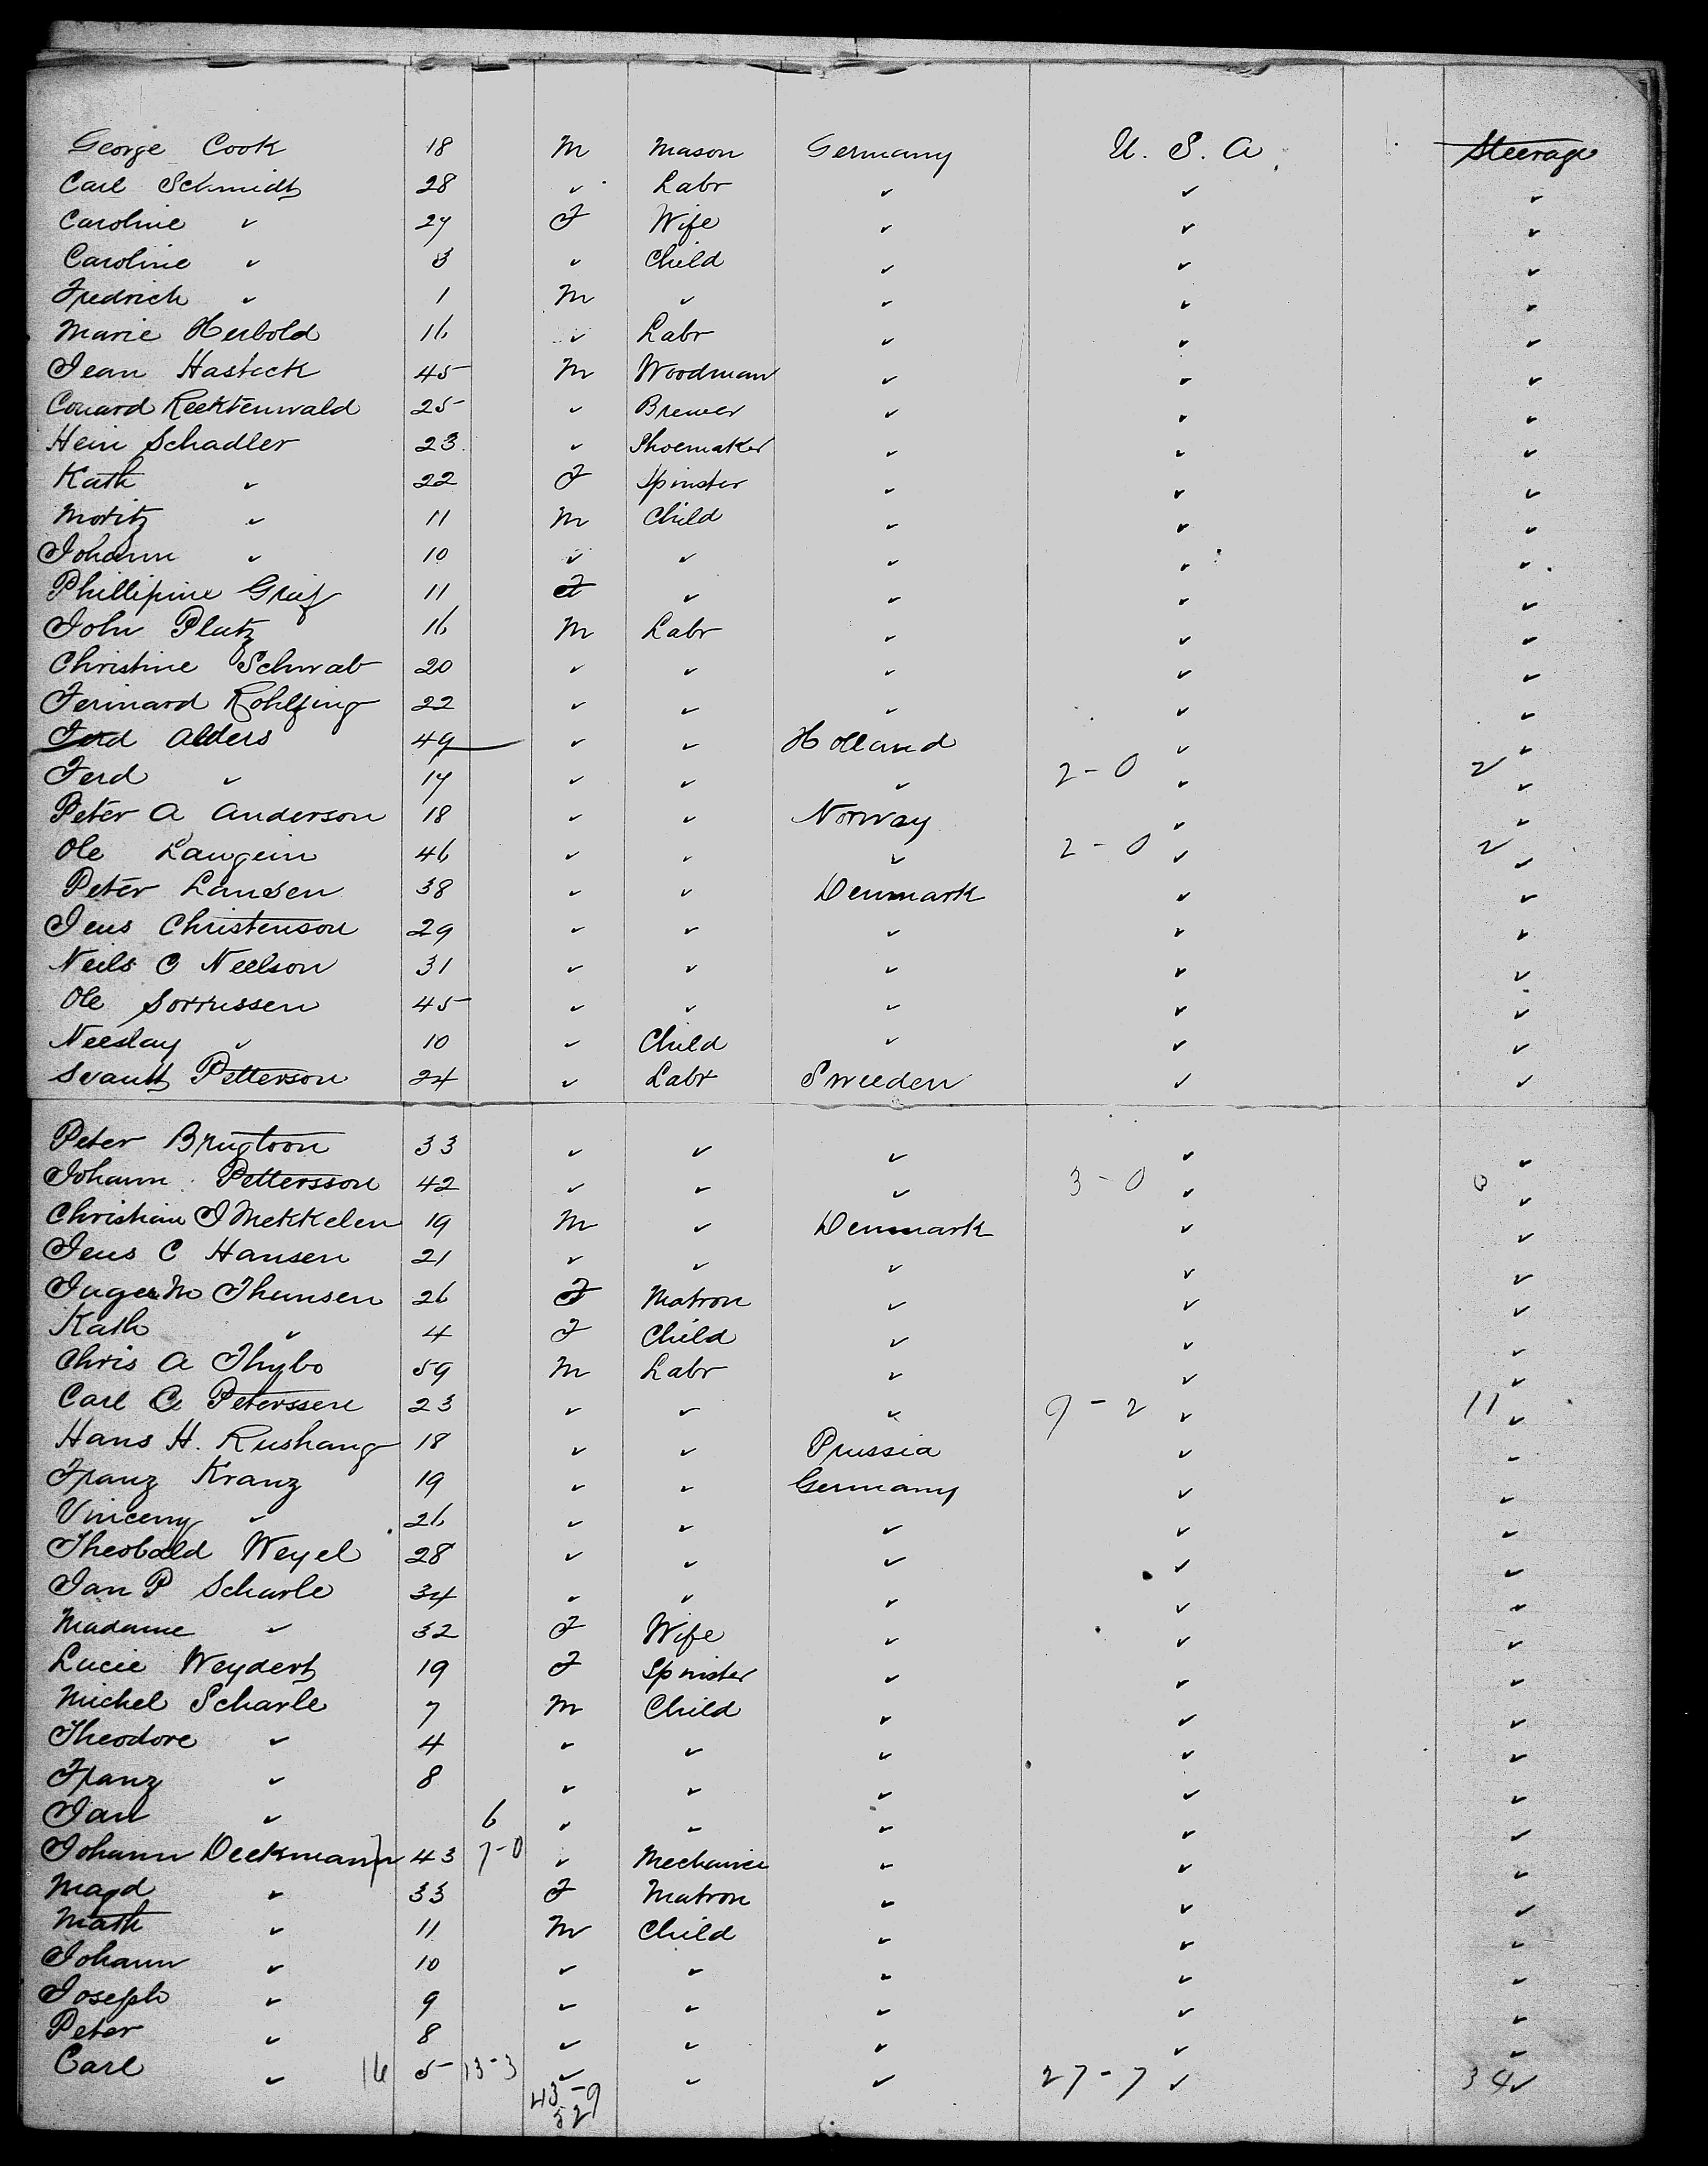 George Cook 18 M Mason Germany U. S. A Steerage
Carl Schmidt 28 ✓ Labr ✓ ✓ ✓
Caroline ✓ 27 F Wife ✓ ✓ ✓
Caroline ✓ 3 ✓ Child ✓ ✓ ✓
Fredrich ✓ 1 M ✓ ✓ ✓ ✓
Marie Herbold 16 ✓ Labr ✓ ✓ ✓
Jean Hasteck 45 M Woodman ✓ ✓ ✓
Conard Recktenwald 25 ✓ Brewer ✓ ✓ ✓
Hein Schadler 23 ✓ Shoemaker ✓ ✓ ✓
Kath ✓ 22 F Spinster ✓ ✓ ✓
Moritz ✓ 11 M Child ✓ ✓ ✓
Johann ✓ 10 ✓ ✓ ✓ ✓ ✓
Phillipine Greif 11 F ✓ ✓ ✓ ✓
John Plutz 16 M Labr ✓ ✓ ✓
Christine Schwab 20 ✓ ✓ ✓ ✓ ✓
Ferinard Rohlfing 22 ✓ ✓ ✓ ✓ ✓
Ferd Alders 49 ✓ ✓ Holland ✓ ✓
Ferd ✓ 17 ✓ ✓ ✓ 2-0 ✓ 2 ✓
Peter A Anderson 18 ✓ ✓ Norway ✓ ✓
Ole Laugein 46 ✓ ✓ ✓ 2-0 ✓ 2 ✓
Peter Lansen 38 ✓ ✓ Denmark ✓ ✓
Jens Christenson 29 ✓ ✓ ✓ ✓ ✓
Neils C Neelson 31 ✓ ✓ ✓ ✓ ✓
Ole Sorrussen 45 ✓ ✓ ✓ ✓ ✓
Neeslay ✓ 10 ✓ Child ✓ ✓ ✓
Svantt Petterson 24 ✓ Labr Sweeden ✓ ✓
Peter Brugtoon 33 ✓ ✓ ✓ ✓ ✓
Johann Pettersson 42 ✓ ✓ ✓ 3-0 ✓ ✓
Christian J Mekkelen 19 M ✓ Denmark ✓ ✓
Jens C Hansen 21 ✓ ✓ ✓ ✓ ✓
Inger M Thunsen 26 F Matron ✓ ✓ ✓
Kath ✓ 4 F Child ✓ ✓ ✓
Chris A Thybo 59 M Labr ✓ ✓ ✓
Carl C Peterssen 23 ✓ ✓ ✓ 9-2 ✓ 11 ✓
Hans H. Rushang 18 ✓ ✓ Prussia ✓ ✓
Franz Kranz 19 ✓ ✓ Germany ✓ ✓
Vinceny ✓ 26 ✓ ✓ ✓ ✓ ✓
Theobald Weyel 28 ✓ ✓ ✓ ✓ ✓
Jan P Scharle 34 ✓ ✓ ✓ ✓ ✓
Madame ✓ 32 F Wife ✓ ✓ ✓
Lucie Weydert 19 F Spinster ✓ ✓ ✓
Michel Scharle 7 M Child ✓ ✓ ✓
Theodore ✓ 4 ✓ ✓ ✓ ✓ ✓
Franz ✓ 8 ✓ ✓ ✓ ✓ ✓
Jan ✓ 6 ✓ ✓ ✓ ✓ ✓
Johann Deekmann 7 43 7-0 ✓ Mechanic ✓ ✓ ✓
Magd ✓ 33 F Matron ✓ ✓ ✓
Math ✓ 11 M Child ✓ ✓ ✓
Johann ✓ 10 ✓ ✓ ✓ ✓ ✓
Joseph ✓ 9 ✓ ✓ ✓ ✓ ✓
Peter ✓ 8 ✓ ✓ ✓ ✓ ✓
Carl ✓ 16 5 13-3 ✓ ✓ ✓ 27-7 ✓ 34 ✓
43-9
52